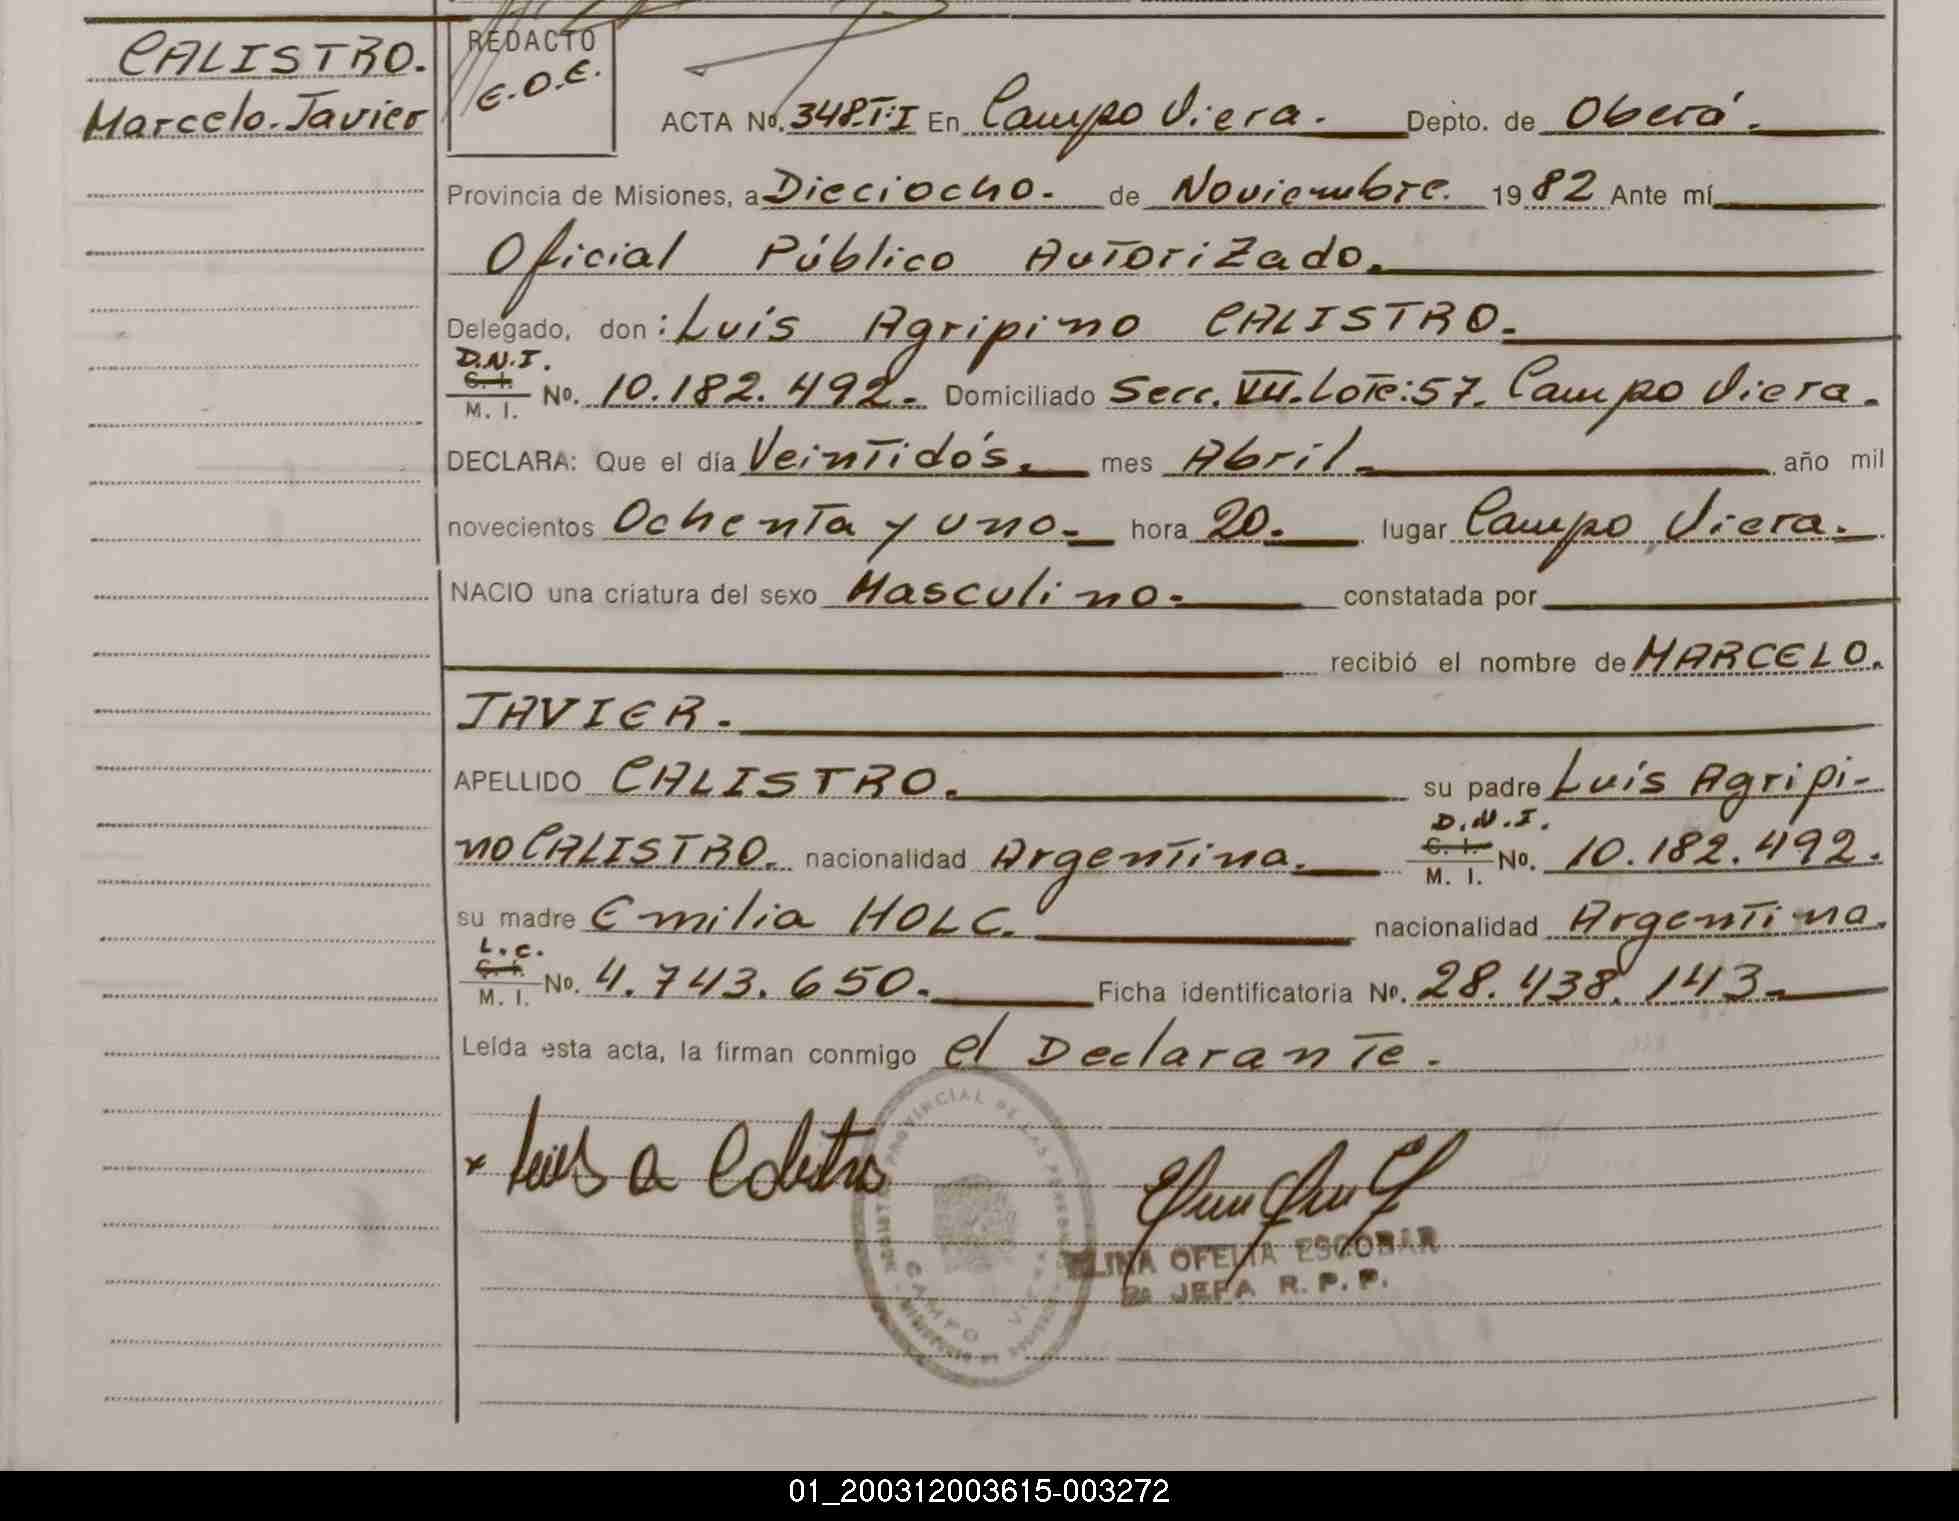 CALISTRO.
Marcelo-Javier
REDACTO
E.O.E.
ACTA Nº. 348.T:I En Campo Viera. Depto. de Oberá.
Provincia de Misiones, a Dieciocho. de Noviembre. 1982 Ante mí
Oficial Público Autorizado.
Delegado, don: Luis Agripino CALISTRO.
D.N.I.
C. I.
M. I. Nº. 10.182.492. Domiciliado Secc. VII. Lote: 57. Campo Viera.
DECLARA: Que el día Veintidós. mes Abril. año mil
novecientos Ochenta y uno. hora 20. lugar Campo Viera.
NACIO una criatura del sexo Masculino. constatada por
recibió el nombre de MARCELO.
JAVIER.
APELLIDO CALISTRO. su padre Luis Agripi-
no CALISTRO. nacionalidad Argentina. D.N.I. C. I. M. I. Nº. 10.182.492.
su madre Emilia HOLC. nacionalidad Argentina.
L.C.
C. I.
M. I. Nº. 4.743.650. Ficha identificatoria Nº. 28.438.143.
Leída esta acta, la firman conmigo el Declarante.
PROVINCIAL DE LAS PERSONAS
CAMPO VIERA
ELINA OFELIA ESCOBAR
2a JEFA R. P. P.
01_200312003615-003272